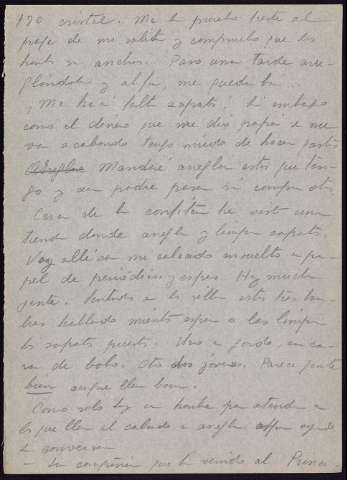 180 cristal. Me lo pruebo frente al
de mi y compruebo que los
son anchos. Paso una tarde arre-
glándolo y al fin, me queda bien.
¡Me hace falta zapatos! Sin embargo
como el dinero que me dio papá se me
va acabando tengo miedo de hacer gasto.
Mandaré arreglar estos que ten-
go y así podré pasar sin comprar otros.
Cerca de la confitería he visto una
tienda donde arreglan y limpian zapatos.
Voy allí con mi calzado envuelto en pa-
pel de periódico y espero. Hay mucha
gente. Sentados en las sillas están tres hom-
bres hablando mientras esperan a que les limpien
los zapatos puestos. Uno es gordo, con ca-
ra de bobo. Otros dos jóvenes. Parece gente
bien aunque llevan
Como solo hay un hombre para atender a
los que llevan el calzado a arreglar oigo
la conversación.
— La compañía que ha venido al Prince